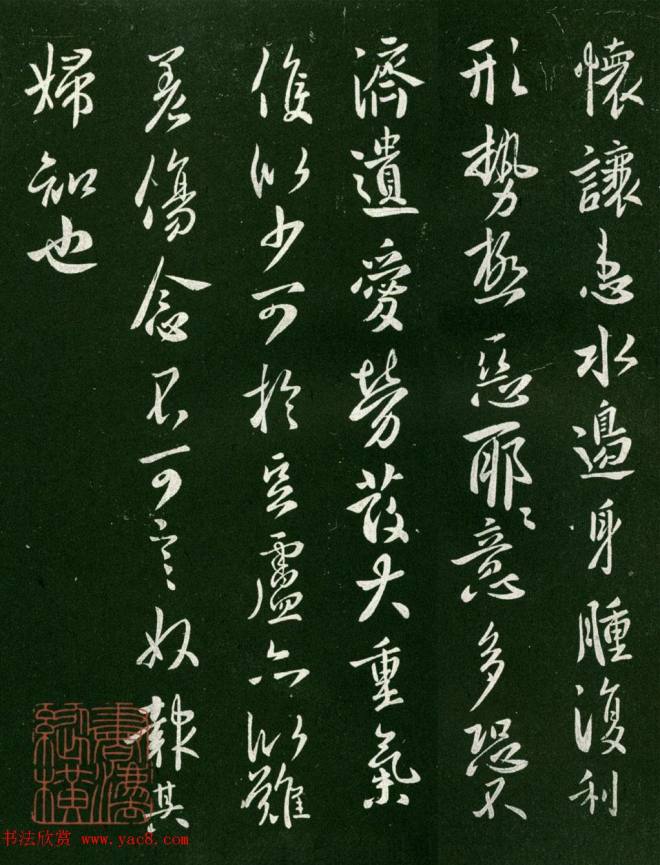 懷讓患水邊身腫復利
形勢極惡耶耶意多恐不
濟遺愛勞發大重氣
復似少可於豆盧亦似難
差傷念不可言奴報其
婦知也
書法欣賞 www.yac8.com